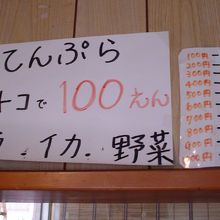 てんぷら
コで100えん
イカ.野菜
100円
200円
300円
400円
500円
600円
700円
800円
900円